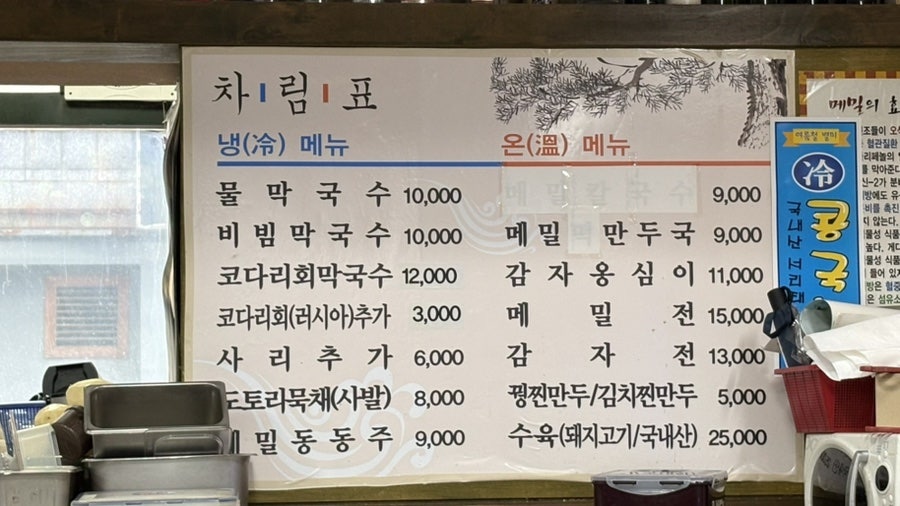 차림표
냉(冷) 메뉴
물막국수 10,000
비빔막국수 10,000
코다리회막국수 12,000
코다리회(러시아)추가 3,000
사리추가 6,000
도토리묵채(사발) 8,000
밀동동주 9,000
온(溫) 메뉴
메밀칼국수 9,000
메밀 만두국 9,000
감자옹심이 11,000
메밀전 15,000
감자전 13,000
꿩찐만두/김치찐만두 5,000
수육(돼지고기/국내산) 25,000
여름철 별미
冷
콩국
메밀의 효
혈관질환